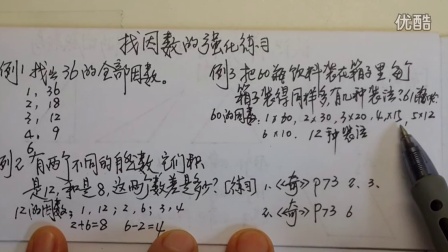 优酷
找因数的强化练习
例1.找出36的全部因数。
1,36
2,18
3,12
4,9
6
例2.有两个不同的自然数,它们积
是12,和是8,这两个数差是多少?
12的因数:1,12;2,6;3,4
2+6=8 6-2=4
例3.把60瓶饮料装在箱子里,每个
箱子装得同样多,有几种装法?61瓶呢
60的因数:1×60,2×30,3×20,4×15,5×12
6×10. 12种装法
[练习] 1.《奇》P73 2、3、
2.《奇》P73 6